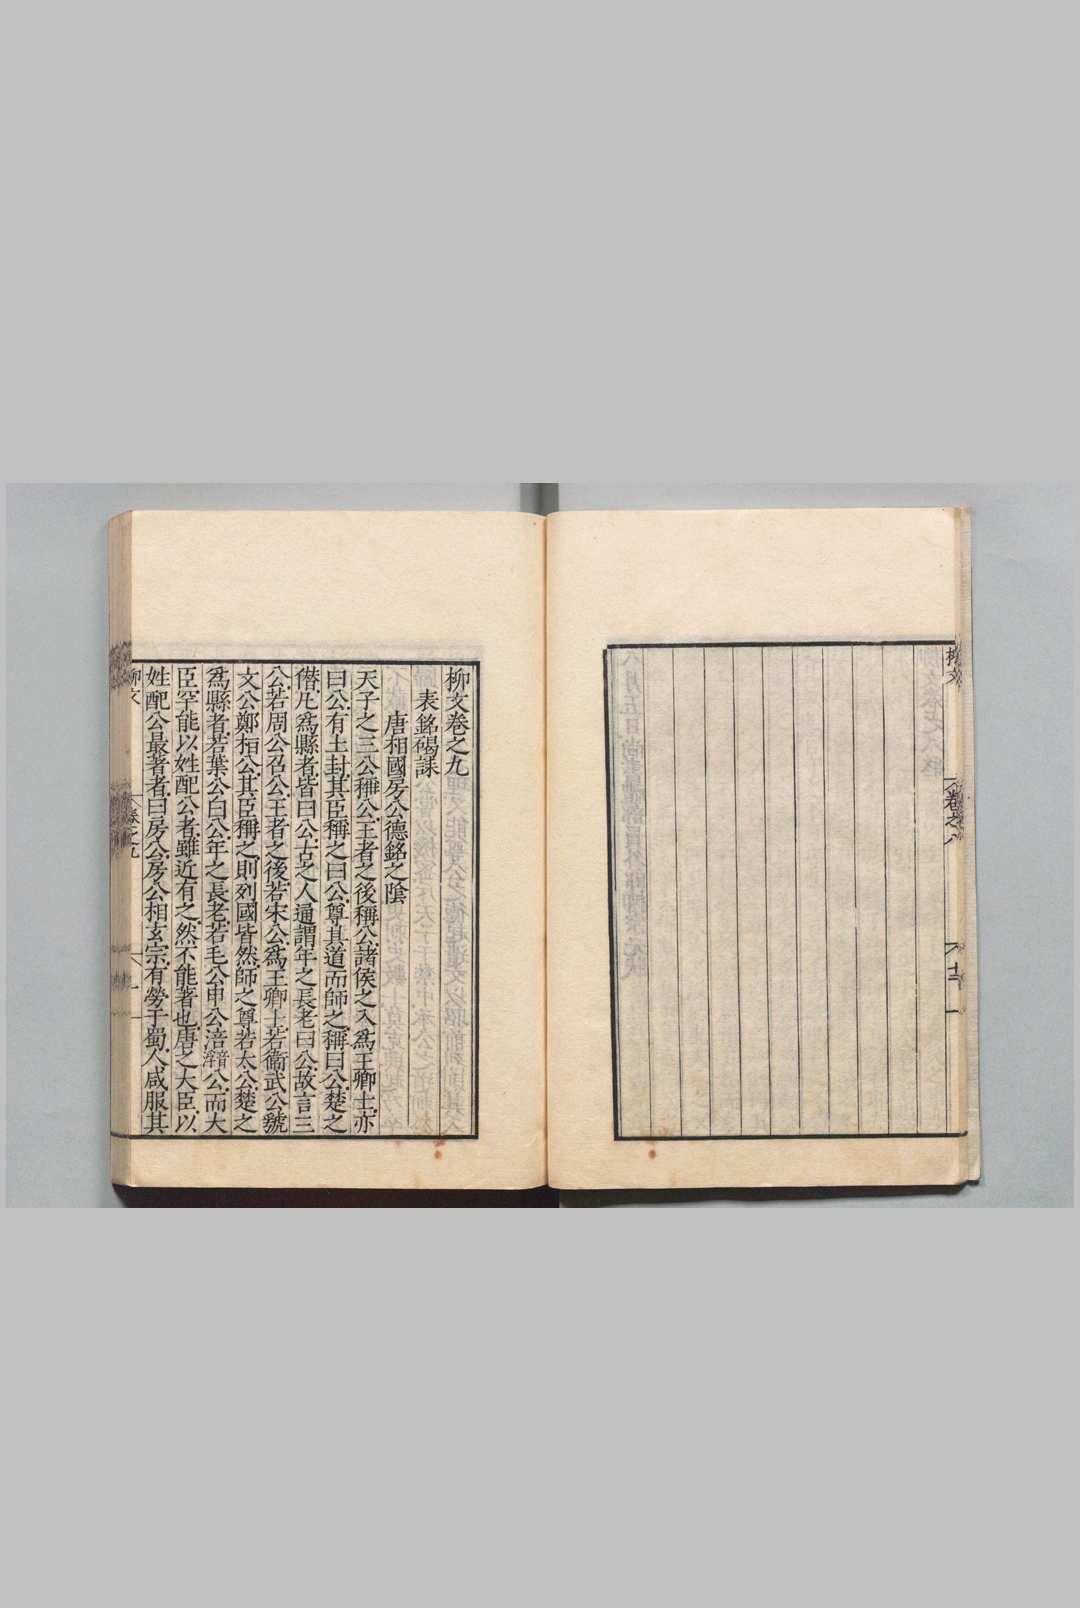 柳文
卷之八
十二
柳文卷之九
表銘碣誄
唐相國房公德銘之陰
天子之三公稱公王者之後稱公諸侯之入爲王卿士亦
曰公有土封其臣稱之曰公尊其道而師之稱曰公楚之
僭凡爲縣者皆曰公古之人通謂年之長老曰公故言三
公若周公召公王者之後若宋公爲王卿士若衞武公虢
文公鄭桓公其臣稱之則列國皆然師之尊若太公楚之
爲縣者若葉公白公年之長老若毛公申公涪公而大
臣罕能以姓配公者雖近有之然不能著也唐之大臣以
姓配公最著者曰房公房公相玄宗有勞于蜀人咸服其
柳文
卷之九
一